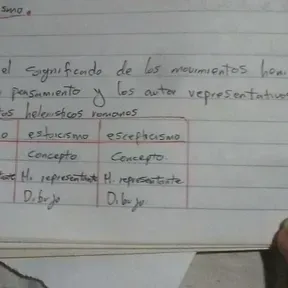 smo.
el significado de los movimientos
pensamiento y los autor representativos
helenísticos romanos
o estoicismo escepticismo
Concepto Concepto
M. representante M. representante
Dibujo Dibujo